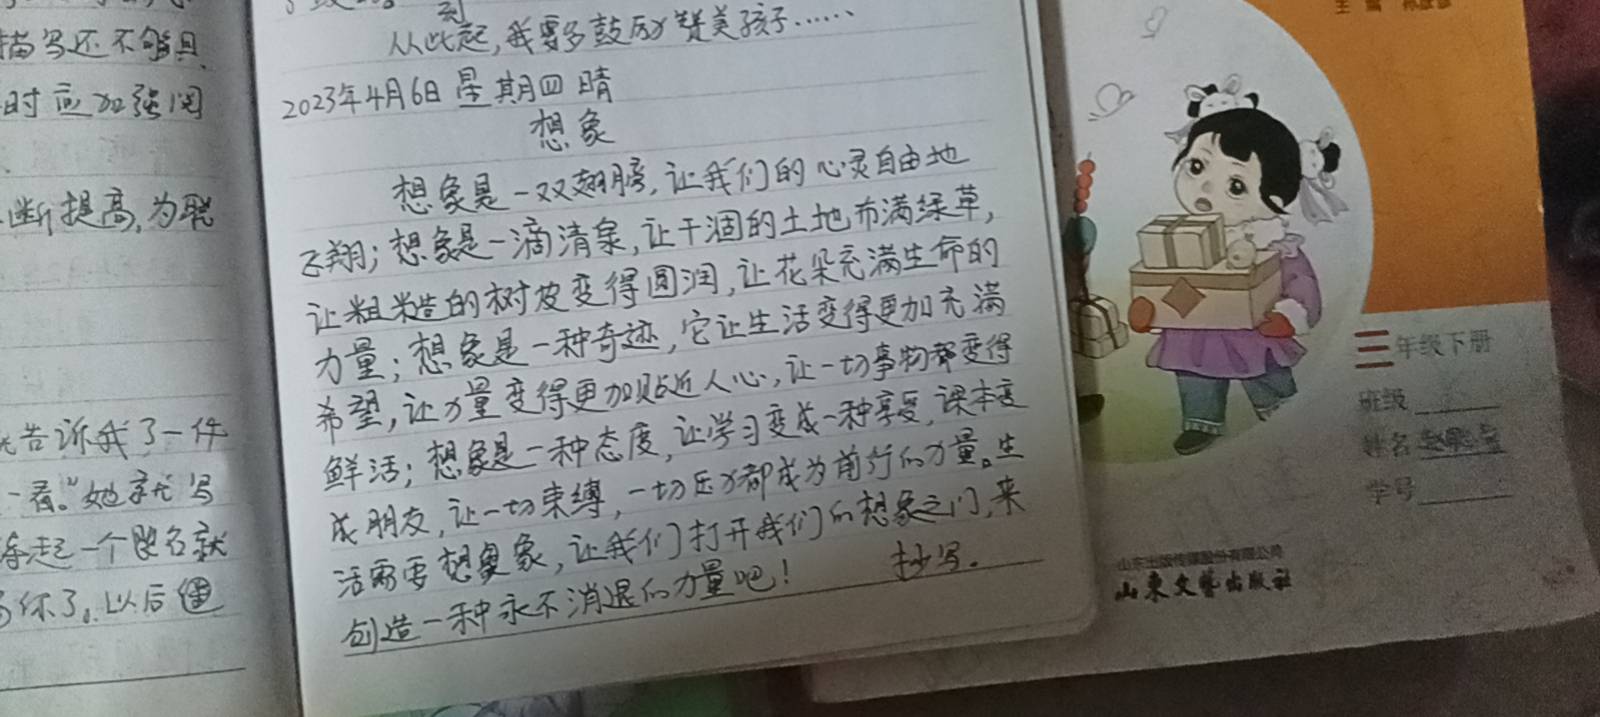 描写还不够具
时应加强阅
断提高,为
告诉我了一件
一看。"她就写
走起一个
你了。以后
到
从此起,我要多鼓励赞美孩子……
2023年4月6日 星期四 晴
想象
想象是一双翅膀,让我们的心灵自由地
飞翔;想象是一滴清泉,让干涸的土地布满绿草,
让粗糙的树皮变得圆润,让花朵充满生命的
力量;想象是一种奇迹,它让生活变得更加充满
希望,让力量变得更加贴近人心,让一切事物都变得
鲜活;想象是一种态度,让学习变成一种享受,课本变
成朋友,让一切束缚,一切压力都成为前行的力量。生
活需要想象,让我们打开我们的想象之门,来
创造一种永不消退的力量吧! 抄写.
主 编
三年级下册
班级
姓名
学号
山东出版传媒股份有限公司
山东文艺出版社